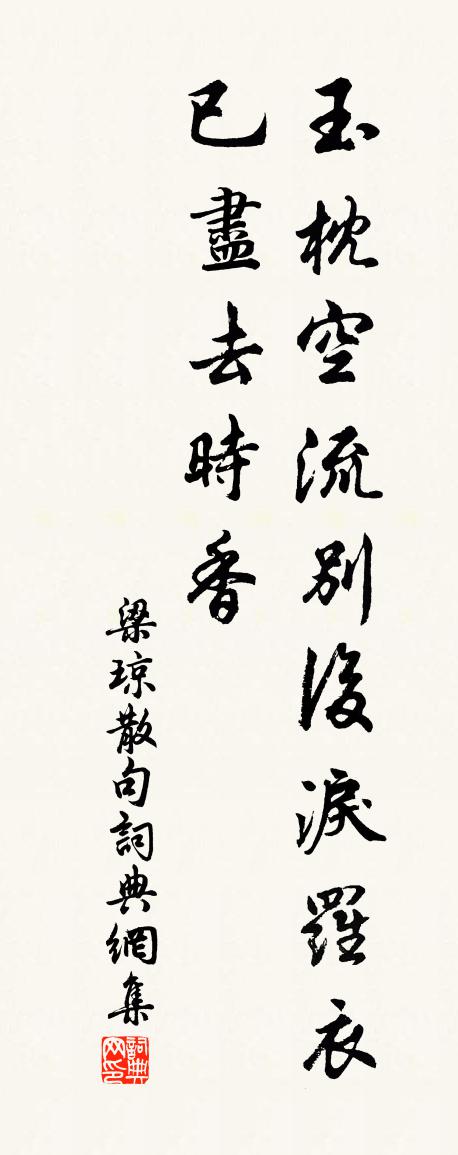 玉枕空流別後淚羅衣
已盡去時香
梁琼散句詞典網集
詞典网印